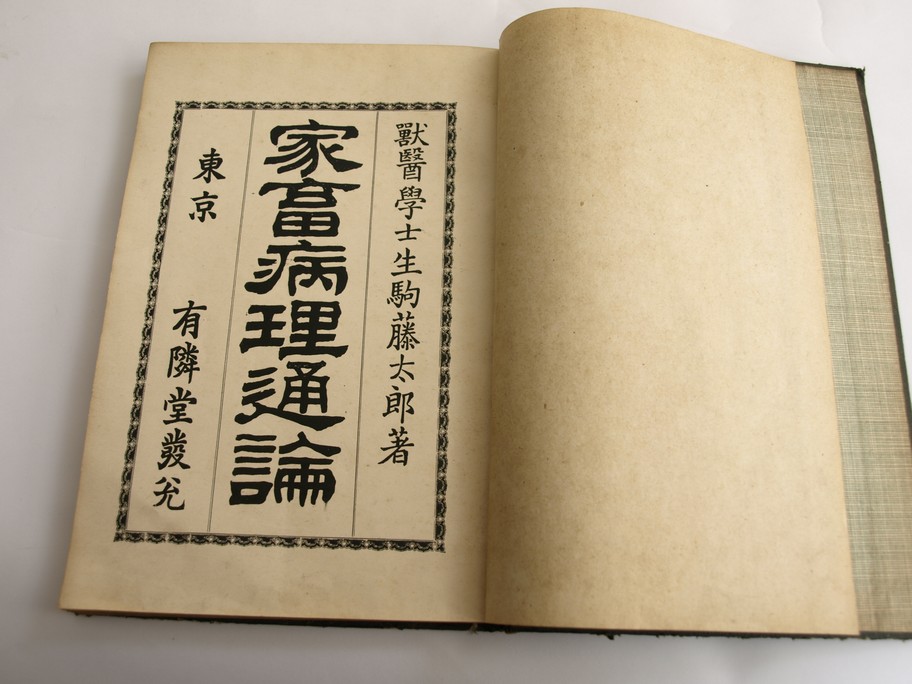 獸醫學士生駒藤太郎著
家畜病理通論
東京 有隣堂發兌